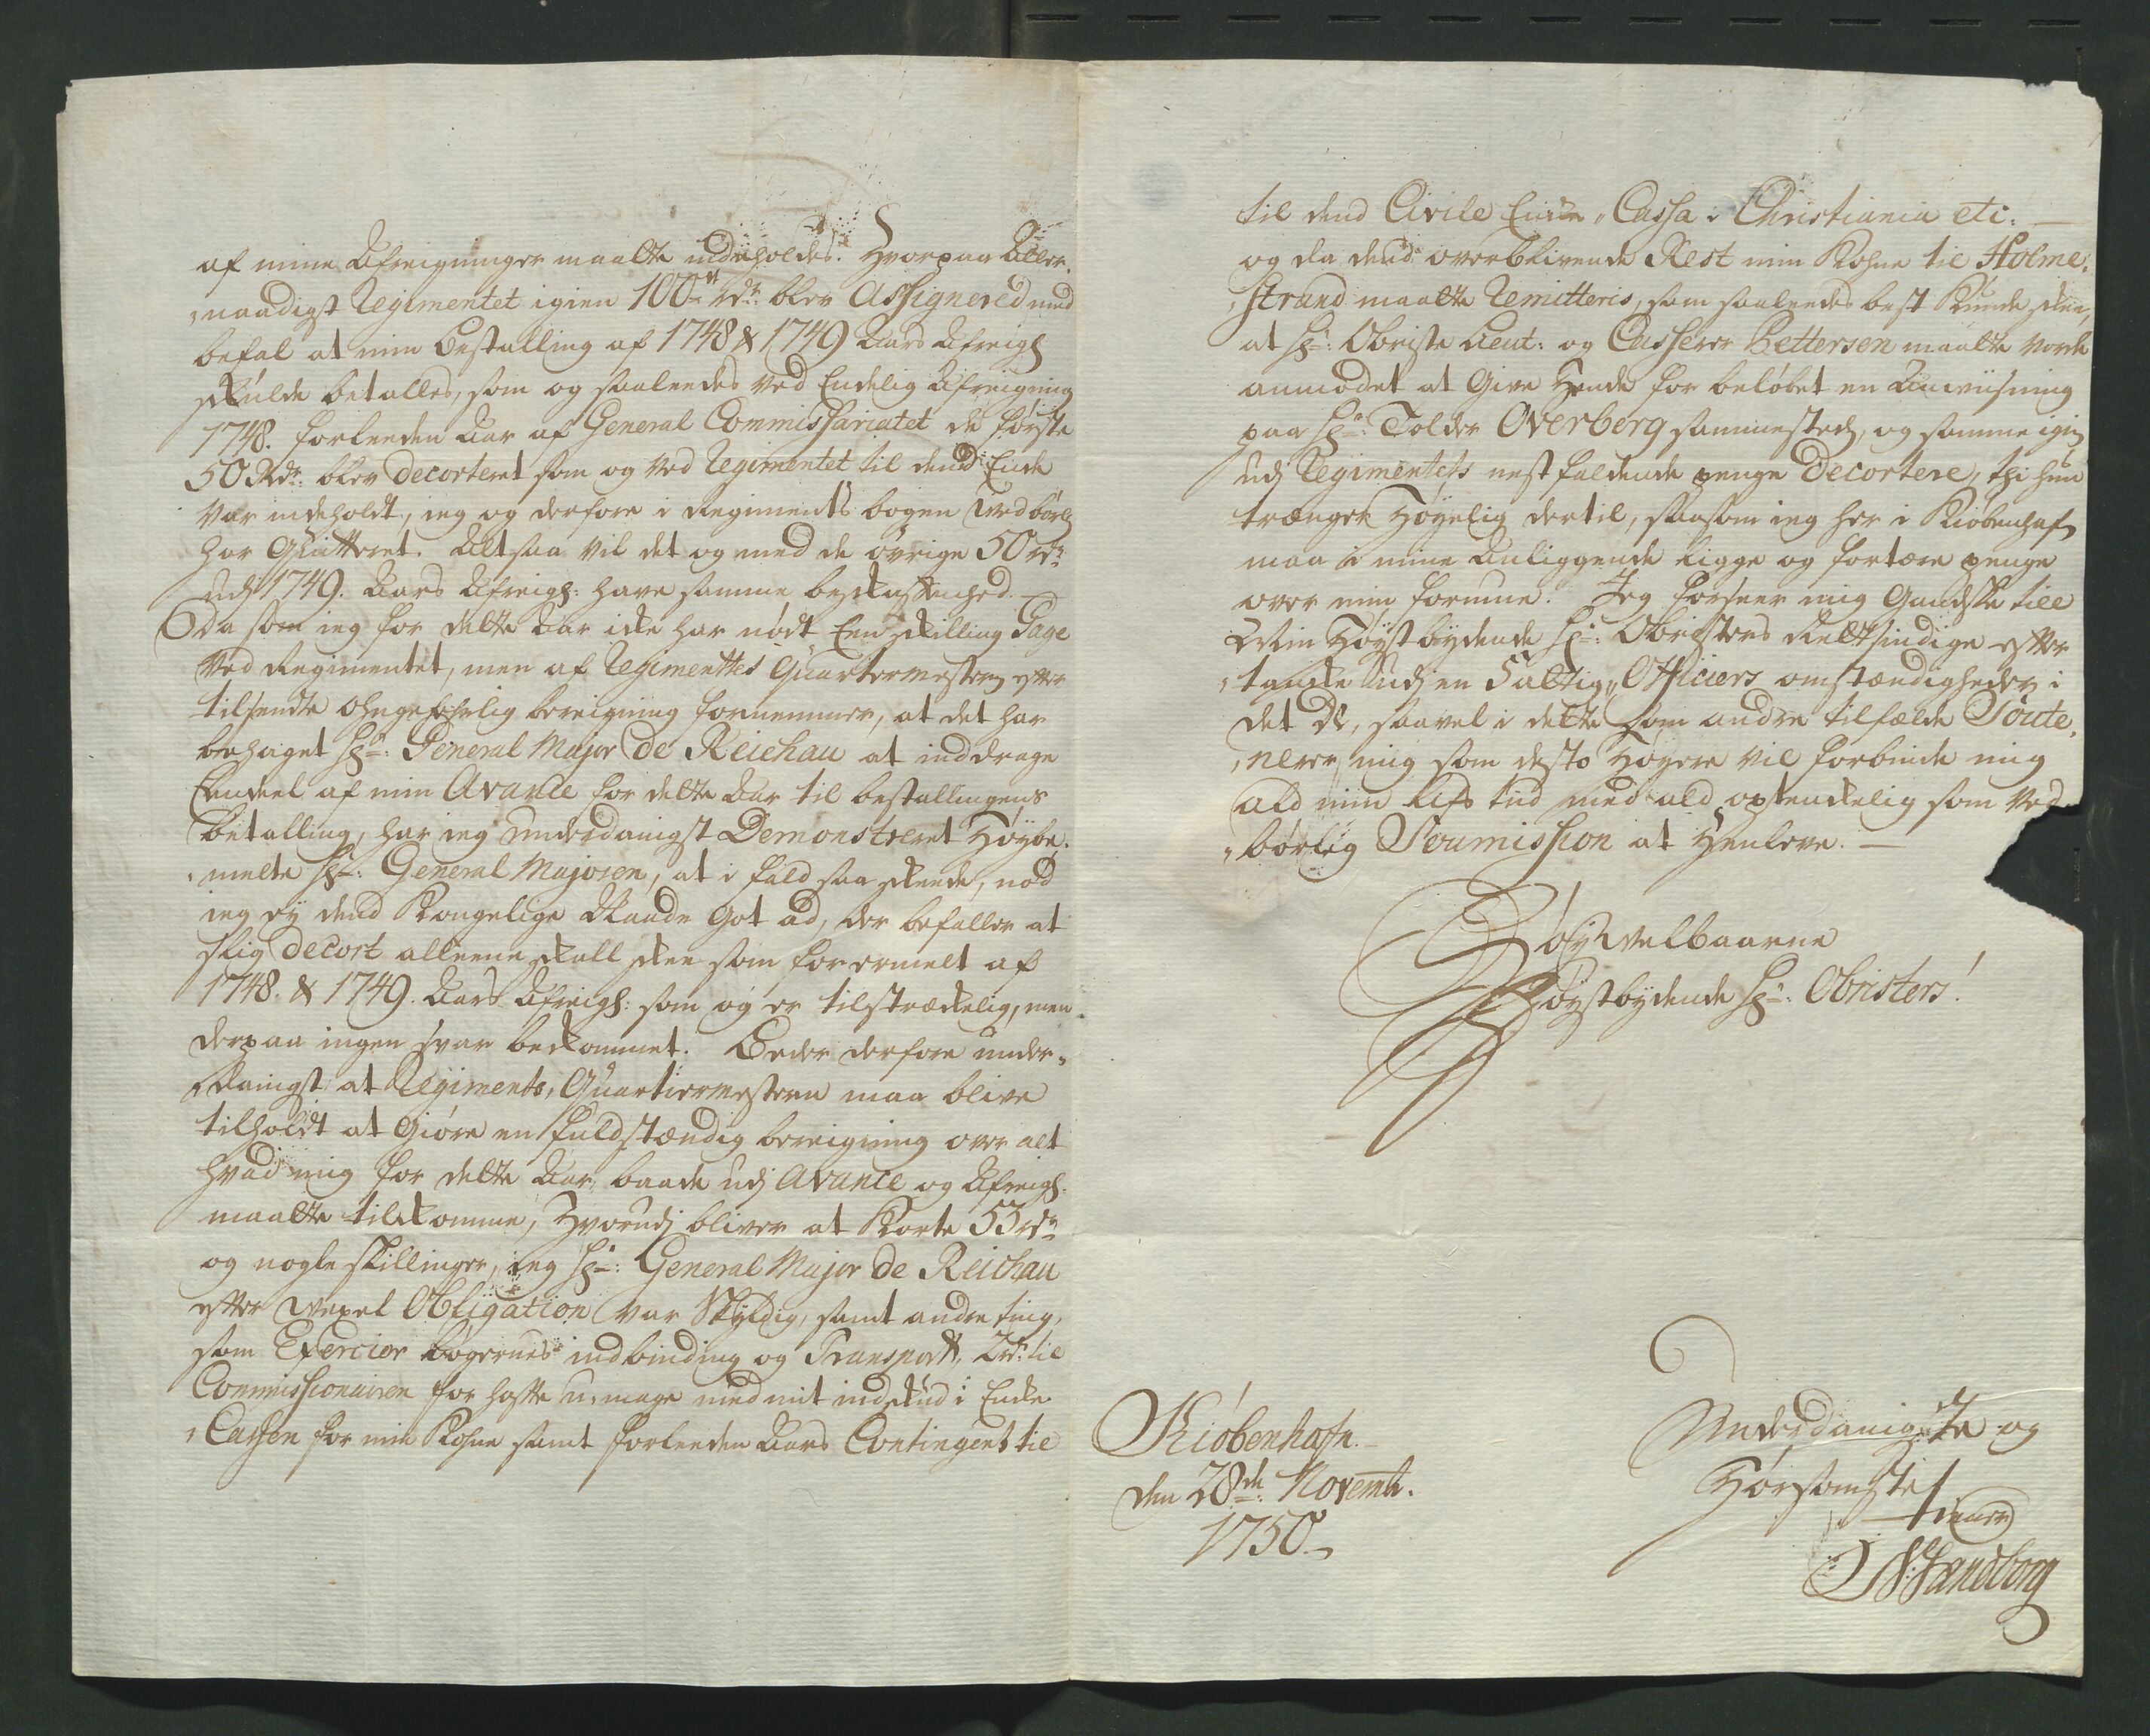 af mine Afreigninger maatte indeholdes. Hvorpaa Aller„
„naadigst Regimentet igien 100 rdr: blev Assigneret med
befal at min bestalling af 1748 & 1749 Aars Afreigh
skulde betalles, som og saaleedes ved Endelig Afreigning
1748. forleeden Aar af General Commissariatet de første
50 Rdr: blev decorteret som og ved Regimentet til dend Ende
var indeholdt, ieg og derfore i Regiments bogen vedbørl
har Quitteret. Altsaa vil det og med de øvrige 50 rdr
udj 1749. Aars Afreigh: have samme beskaffenhed.
Da som ieg for dette Aar icke har nødt Een skilling Gage
ved Regimentet, men af Regimenttes Quartermestern efter
tilsendte ohngefehrlig bereigning fornemmer, at det har
behaget Hr: General Major de Reichau at inddrage
Eendeel af min Avance for dette Aar til bestallingens
betalling, har ieg underdanigst Demonstreret Høybe„
„melte Hr: General Majoren, at i fald saa skeede, nød
ieg ey dend Kongelige Naade Got ad, der befaller at
slig decort alleene skall skee som forermelt af
1748. & 1749. Aars Afreigh: som og er tilstreckelig, men
derpaa ingen svar bekommet. Beder derfore under„
„danigst at Regiments„ Quartiermestern maa blive
tilholdt at Giøre en fuldstændig bereigning over alt
hvad mig for dette Aar, baade udj Avance og Afreigh:
maatte tilkomme, Hvorudj bliver at Korte 53 rdr
og nogle skillinger, ieg Hr: General Major de Reichau
efter Vexel Obligation var Skyldig, samt andre ting,
som Exercier bøgernes indbinding og Transport, 2 rdr: til
Commissionairen for hafte u„mage med mit indskud i Encke
„Cassen for min Kohne samt forleeden Aars Contingent til
til dend Civile Encke„ Cassa i Christiania etc:
og da dend overblivende Rest min Kohne til Holme„
„strand maatte Remitteris, som saaleedes best Kunde skee,
at Hr: Obriste Lieut: og Casserer Pettersen maatte vorde
anmodet at Give Hende for beløbet en Anviisning
paa Hr: Tolder Overberg sammesteds, og samme igien
udj Regimentets nest faldende penge Decortere, thi hun
trænger Høyelig dertil, saasom ieg her i Kiøbenhafn
maa i mine Anliggende ligge og fortære penge
over min formue. Jeg forseer mig Gandske till
Min Høystbydende Hr: Obristers Retsindige efter
„tancke udj en Fattig„ Officiers omstændigheder i
det De, saavel i dette som andre tilfælde Soute„
„nerer mig som desto Høyere vil forbinde mig
ald min Lifs tiid med ald optenckelig som ved
„børlig Soumission at Henleve.
Høy Velbaarne
Høystbydende Hr: Obristers!
Kiøbenhafn.
den 28de: Novemb.
1750.
Underdanigste og
Hørsomste
tienere
Sandborg